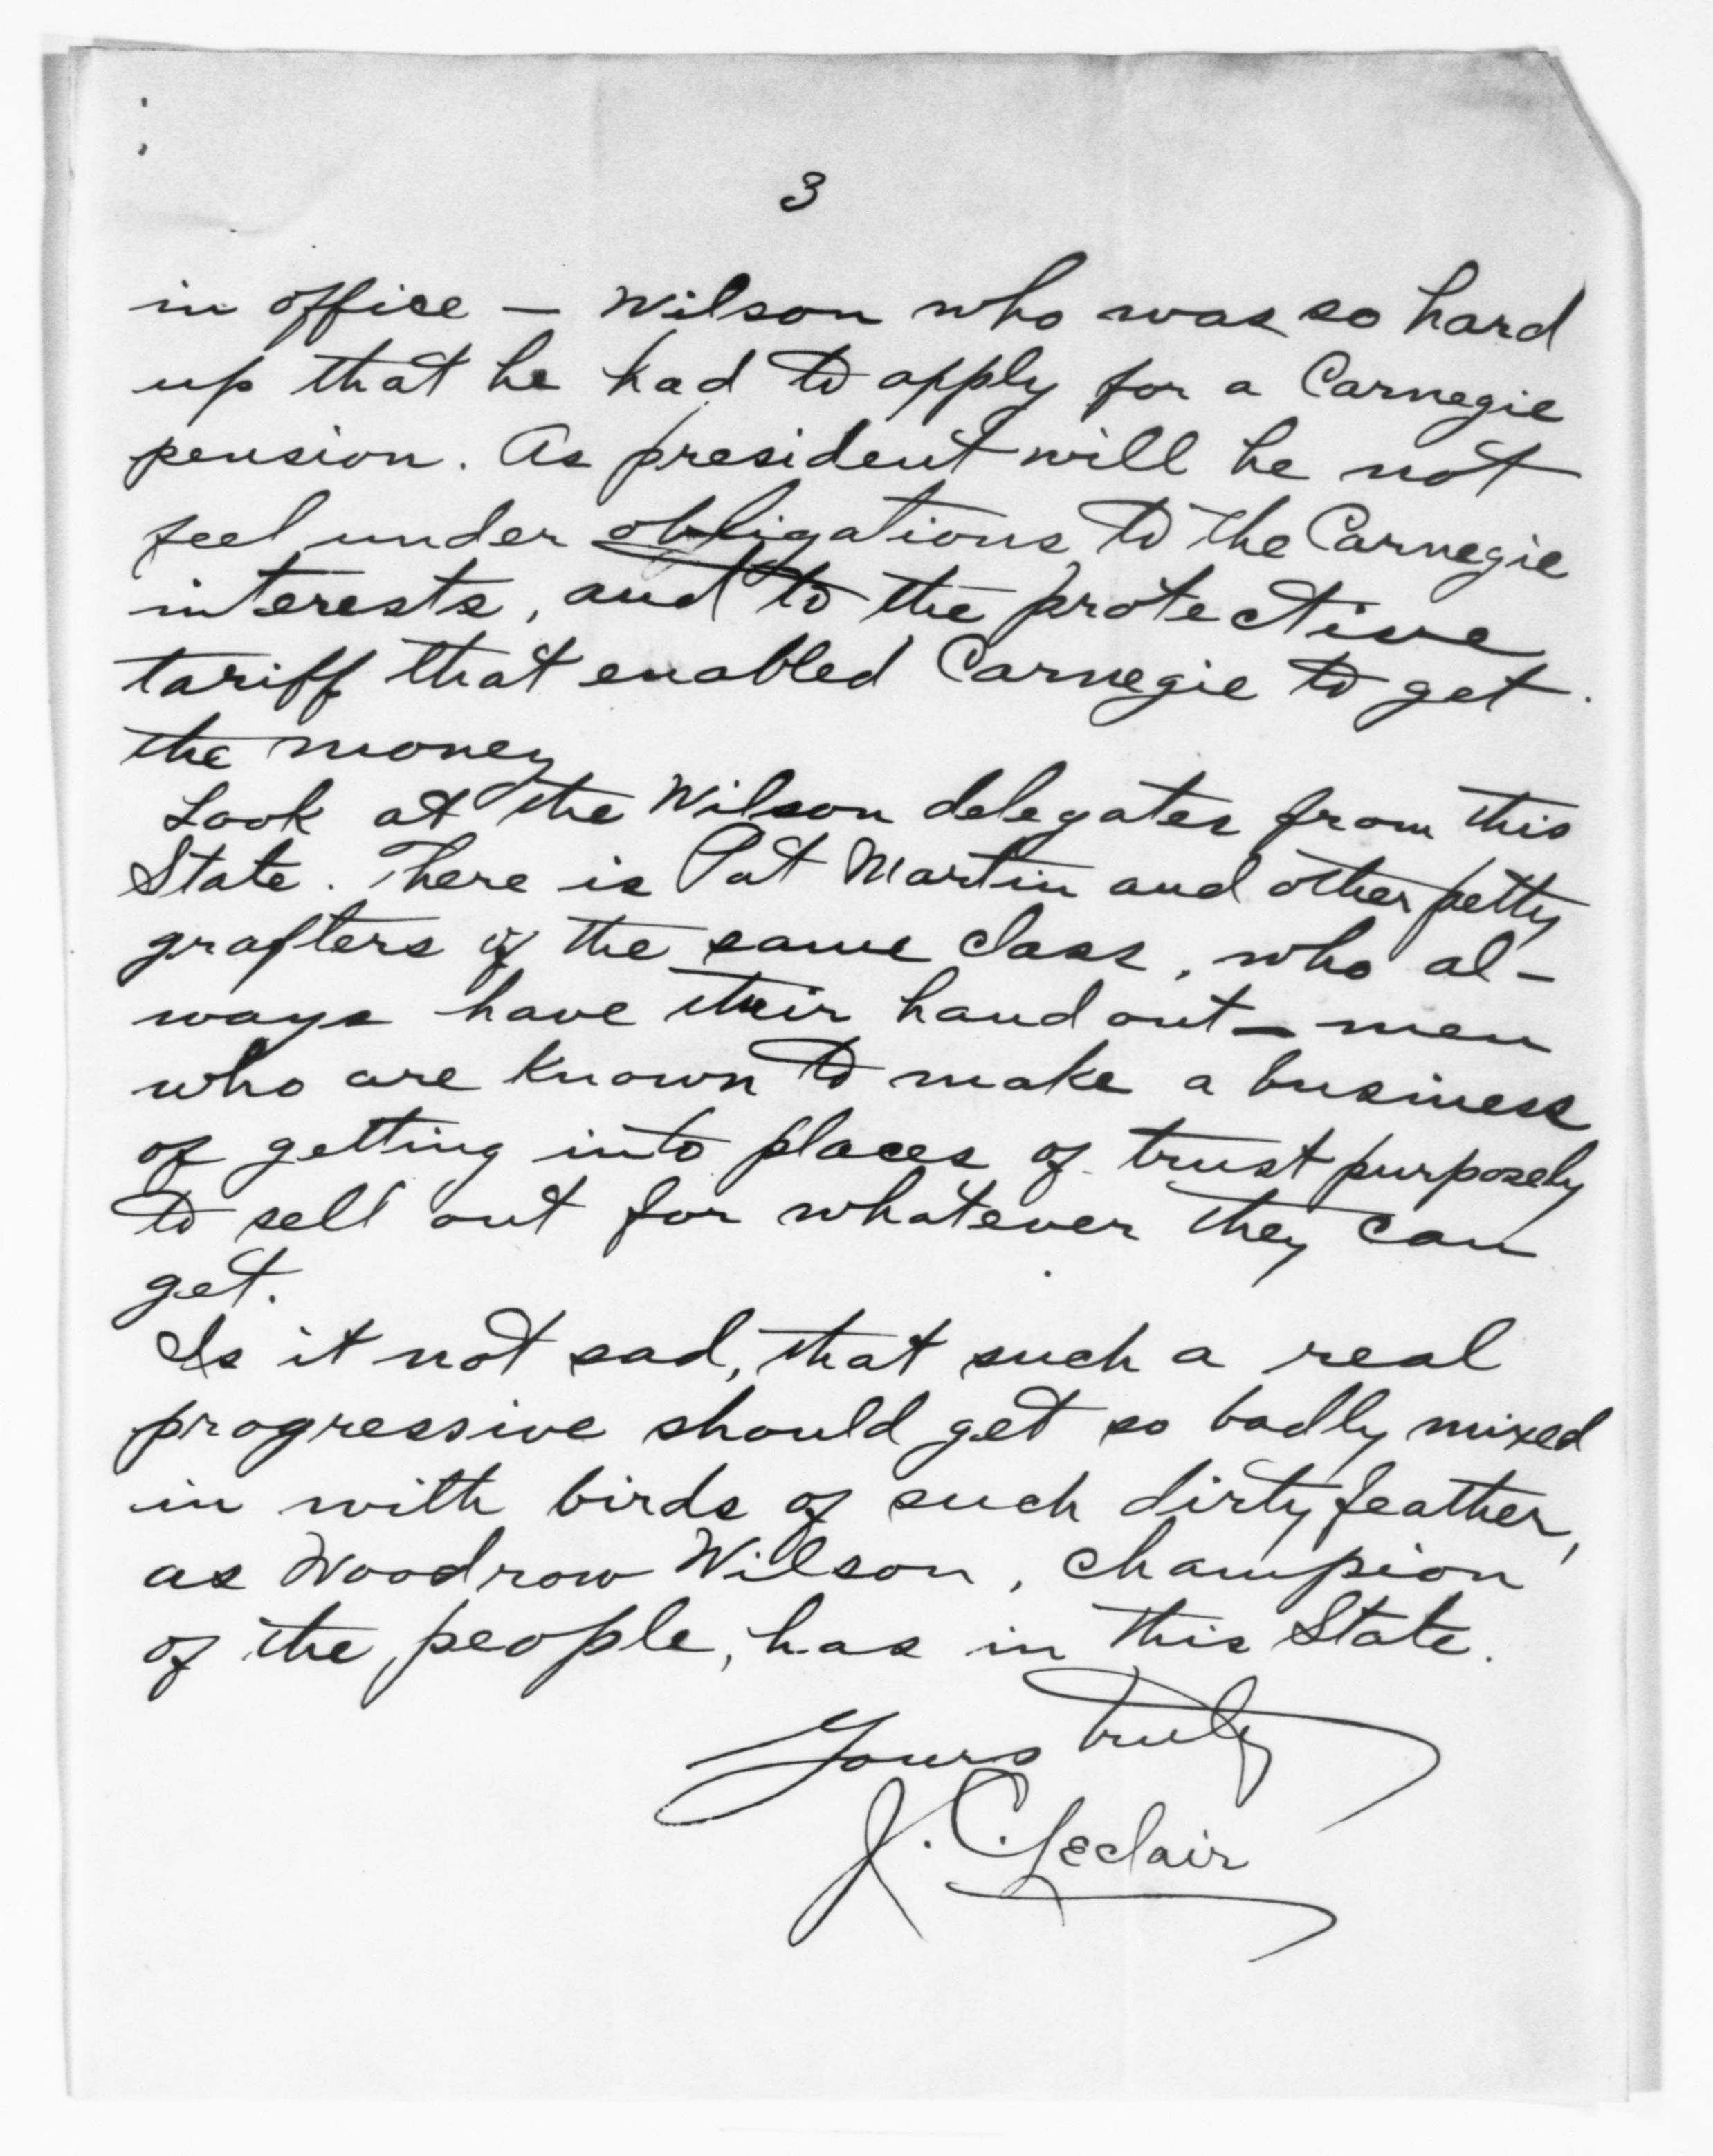 3
in office — Wilson who was so hard
up that he had to apply for a Carnegie
pension. As president will he not
feel under obligations to the Carnegie
interests, and to the protective
tariff that enabled Carnegie to get
the money
Look at the Wilson delegates from this
State. There is Pat Martin and other petty
grafters of the same class, who al-
ways have their hand out — men
who are known to make a business
of getting into places of trust purposely
to sell out for whatever they can
get.
Is it not sad, that such a real
progressive should get so badly mixed
in with birds of such dirty feather,
as Woodrow Wilson, champion
of the people, has in this State.
Yours truly
J. C. Leclair